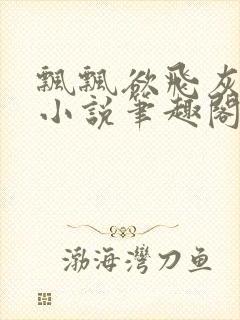 飄飄欲飛灰
小說筆趣閣
渤海灣刀鱼